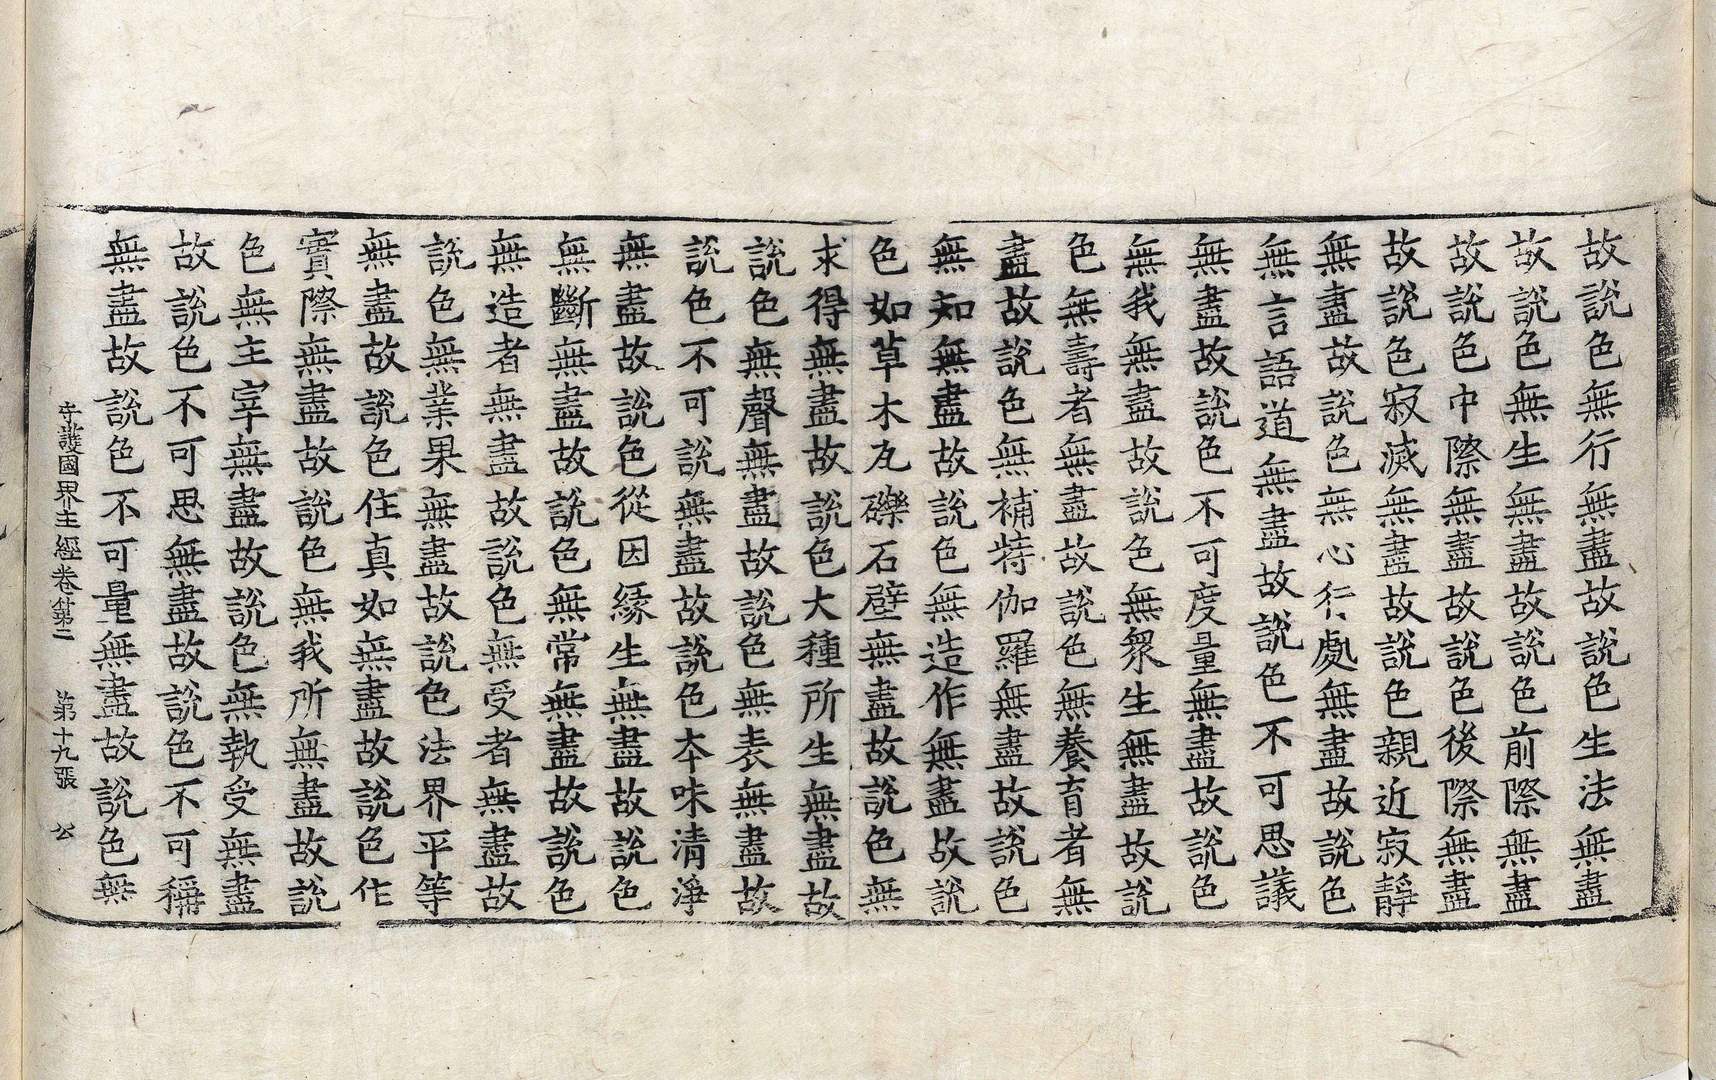 故說色無行無盡故說色生法無盡
故說色無生無盡故說色前際無盡
故說色中際無盡故說色後際無盡
故說色寂滅無盡故說色親近寂靜
無盡故說色無心行處無盡故說色
無言語道無盡故說色不可思議
無盡故說色不可度量無盡故說色
無我無盡故說色無衆生無盡故說
色無壽者無盡故說色無養育者無
盡故說色無補特伽羅無盡故說色
無知無盡故說色無造作無盡故說
色如草木瓦礫石壁無盡故說色無
求得無盡故說色大種所生無盡故
說色無聲無盡故說色無表無盡故
說色不可說無盡故說色本味清淨
無盡故說色從因緣生無盡故說色
無斷無盡故說色無常無盡故說色
無造者無盡故說色無受者無盡故
說色無業果無盡故說色法界平等
無盡故說色住真如無盡故說色住
實際無盡故說色無我所無盡故說
色無主宰無盡故說色無執受無盡
故說色不可思無盡故說色不可稱
無盡故說色不可量無盡故說色無
守護國界主經卷第二 第十九張 公